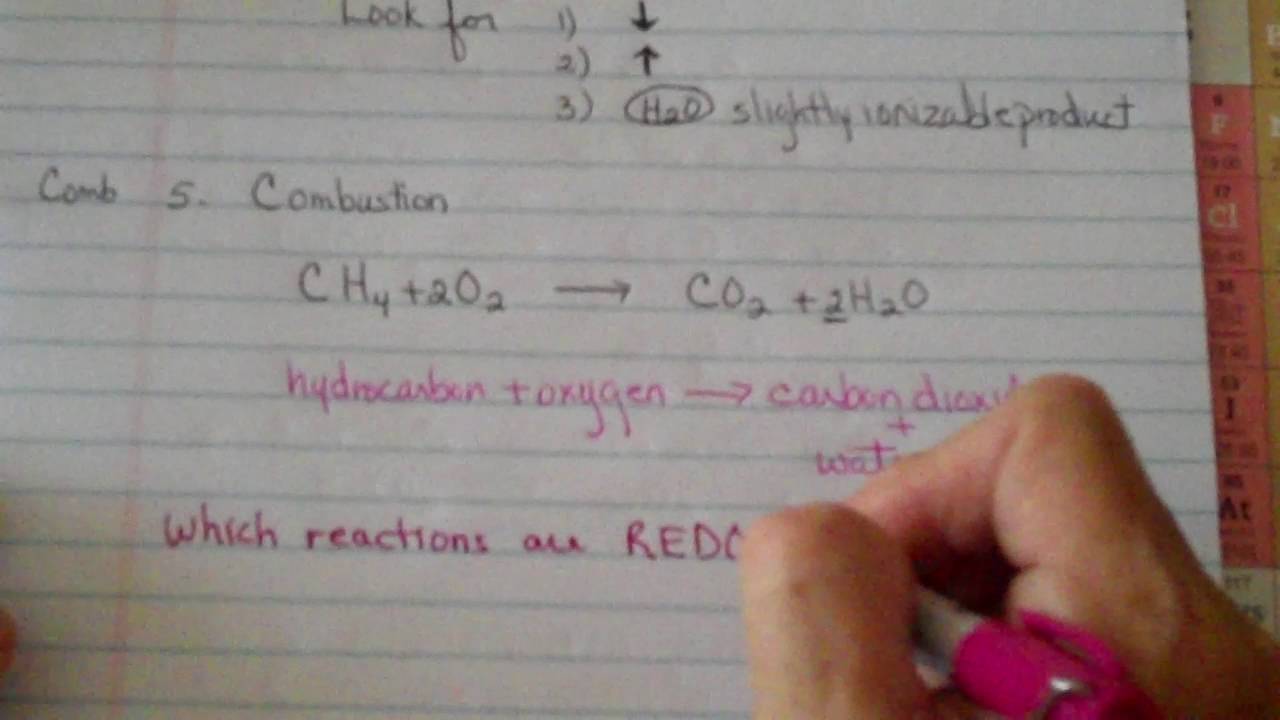 Look for 1) ↓
2) ↑
3) H₂O slightly ionizable product
Comb 5. Combustion
CH₄ + 2O₂ → CO₂ + 2H₂O
hydrocarbon + oxygen → carbon dioxi
+
wat
Which reactions are REDO
F
Cl
I
At